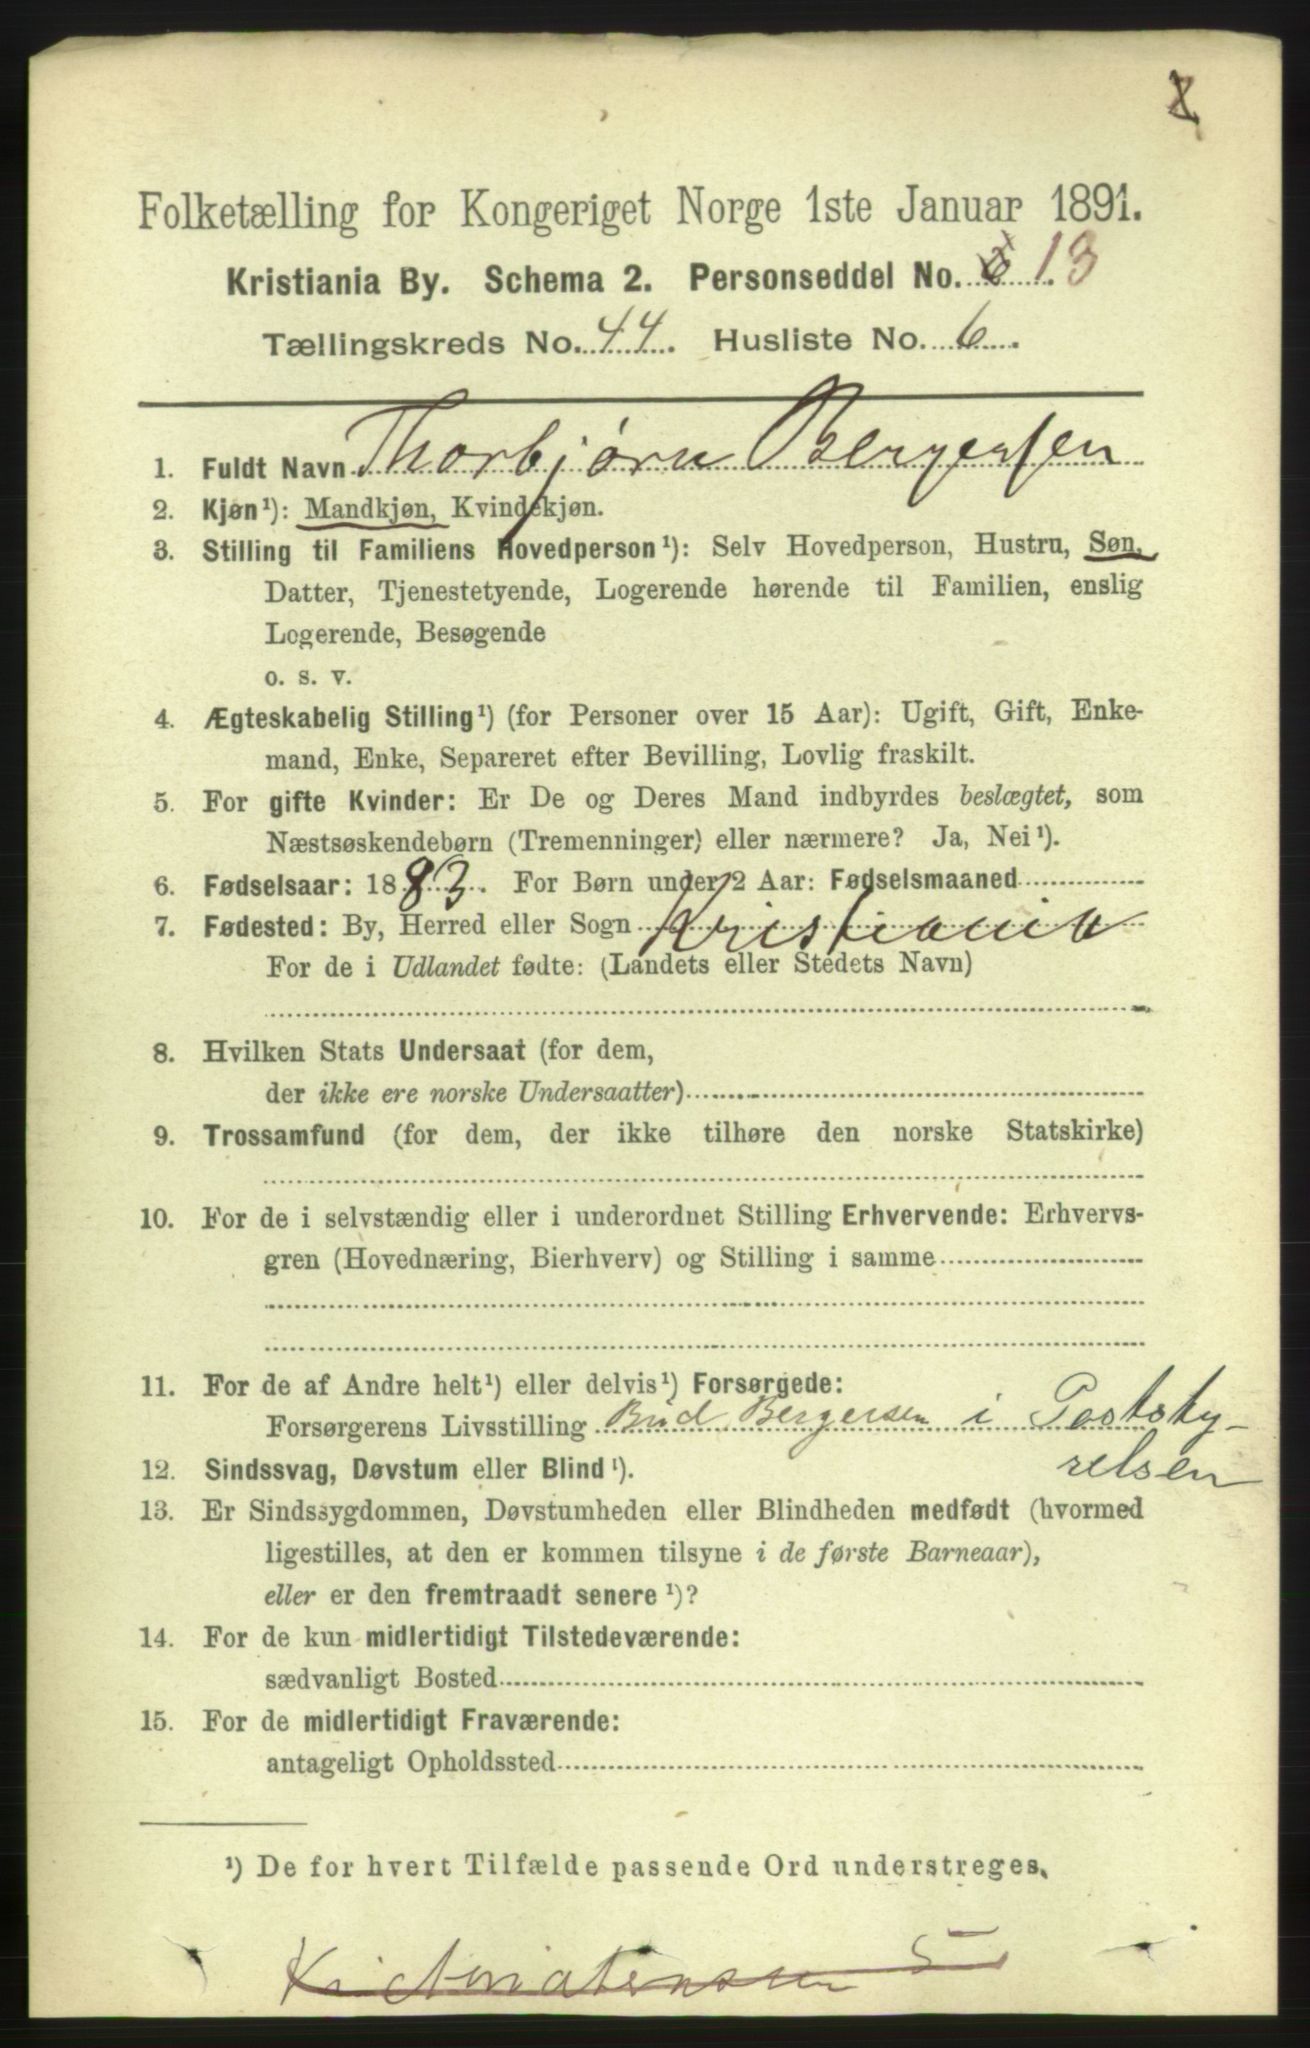 Folketælling for Kongeriget Norge 1ste Januar 1891.
Kristiania By. Schema 2. Personseddel No. 13
Tællingskreds No. 44. Husliste No. 6.
1. Fuldt Navn Thorbjørn Bergersen
2. Kjøn¹): Mandkjøn, Kvindekjøn.
3. Stilling til Familiens Hovedperson¹): Selv Hovedperson, Hustru, Søn,
Datter, Tjenestetyende, Logerende hørende til Familien, enslig
Logerende, Besøgende
o. s. v.
4. Ægteskabelig Stilling¹) (for Personer over 15 Aar): Ugift, Gift, Enke-
mand, Enke, Separeret efter Bevilling, Lovlig fraskilt.
5. For gifte Kvinder: Er De og Deres Mand indbyrdes beslægtet, som
Næstsøskendebørn (Tremenninger) eller nærmere? Ja, Nei¹).
6. Fødselsaar: 1883. For Børn under 2 Aar: Fødselsmaaned
7. Fødested: By, Herred eller Sogn Kristiania
For de i Udlandet fødte: (Landets eller Stedets Navn)
8. Hvilken Stats Undersaat (for dem,
der ikke ere norske Undersaatter)
9. Trossamfund (for dem, der ikke tilhøre den norske Statskirke)
10. For de i selvstændig eller i underordnet Stilling Erhvervende: Erhvervs-
gren (Hovednæring, Bierhverv) og Stilling i samme
11. For de af Andre helt¹) eller delvis¹) Forsørgede:
Forsørgerens Livsstilling Bud Bergersen i Poststy-
relsen
12. Sindssvag, Døvstum eller Blind¹).
13. Er Sindssygdommen, Døvstumheden eller Blindheden medfødt (hvormed
ligestilles, at den er kommen tilsyne i de første Barneaar),
eller er den fremtraadt senere¹)?
14. For de kun midlertidigt Tilstedeværende:
sædvanligt Bosted
15. For de midlertidigt Fraværende:
antageligt Opholdssted
¹) De for hvert Tilfælde passende Ord understreges.